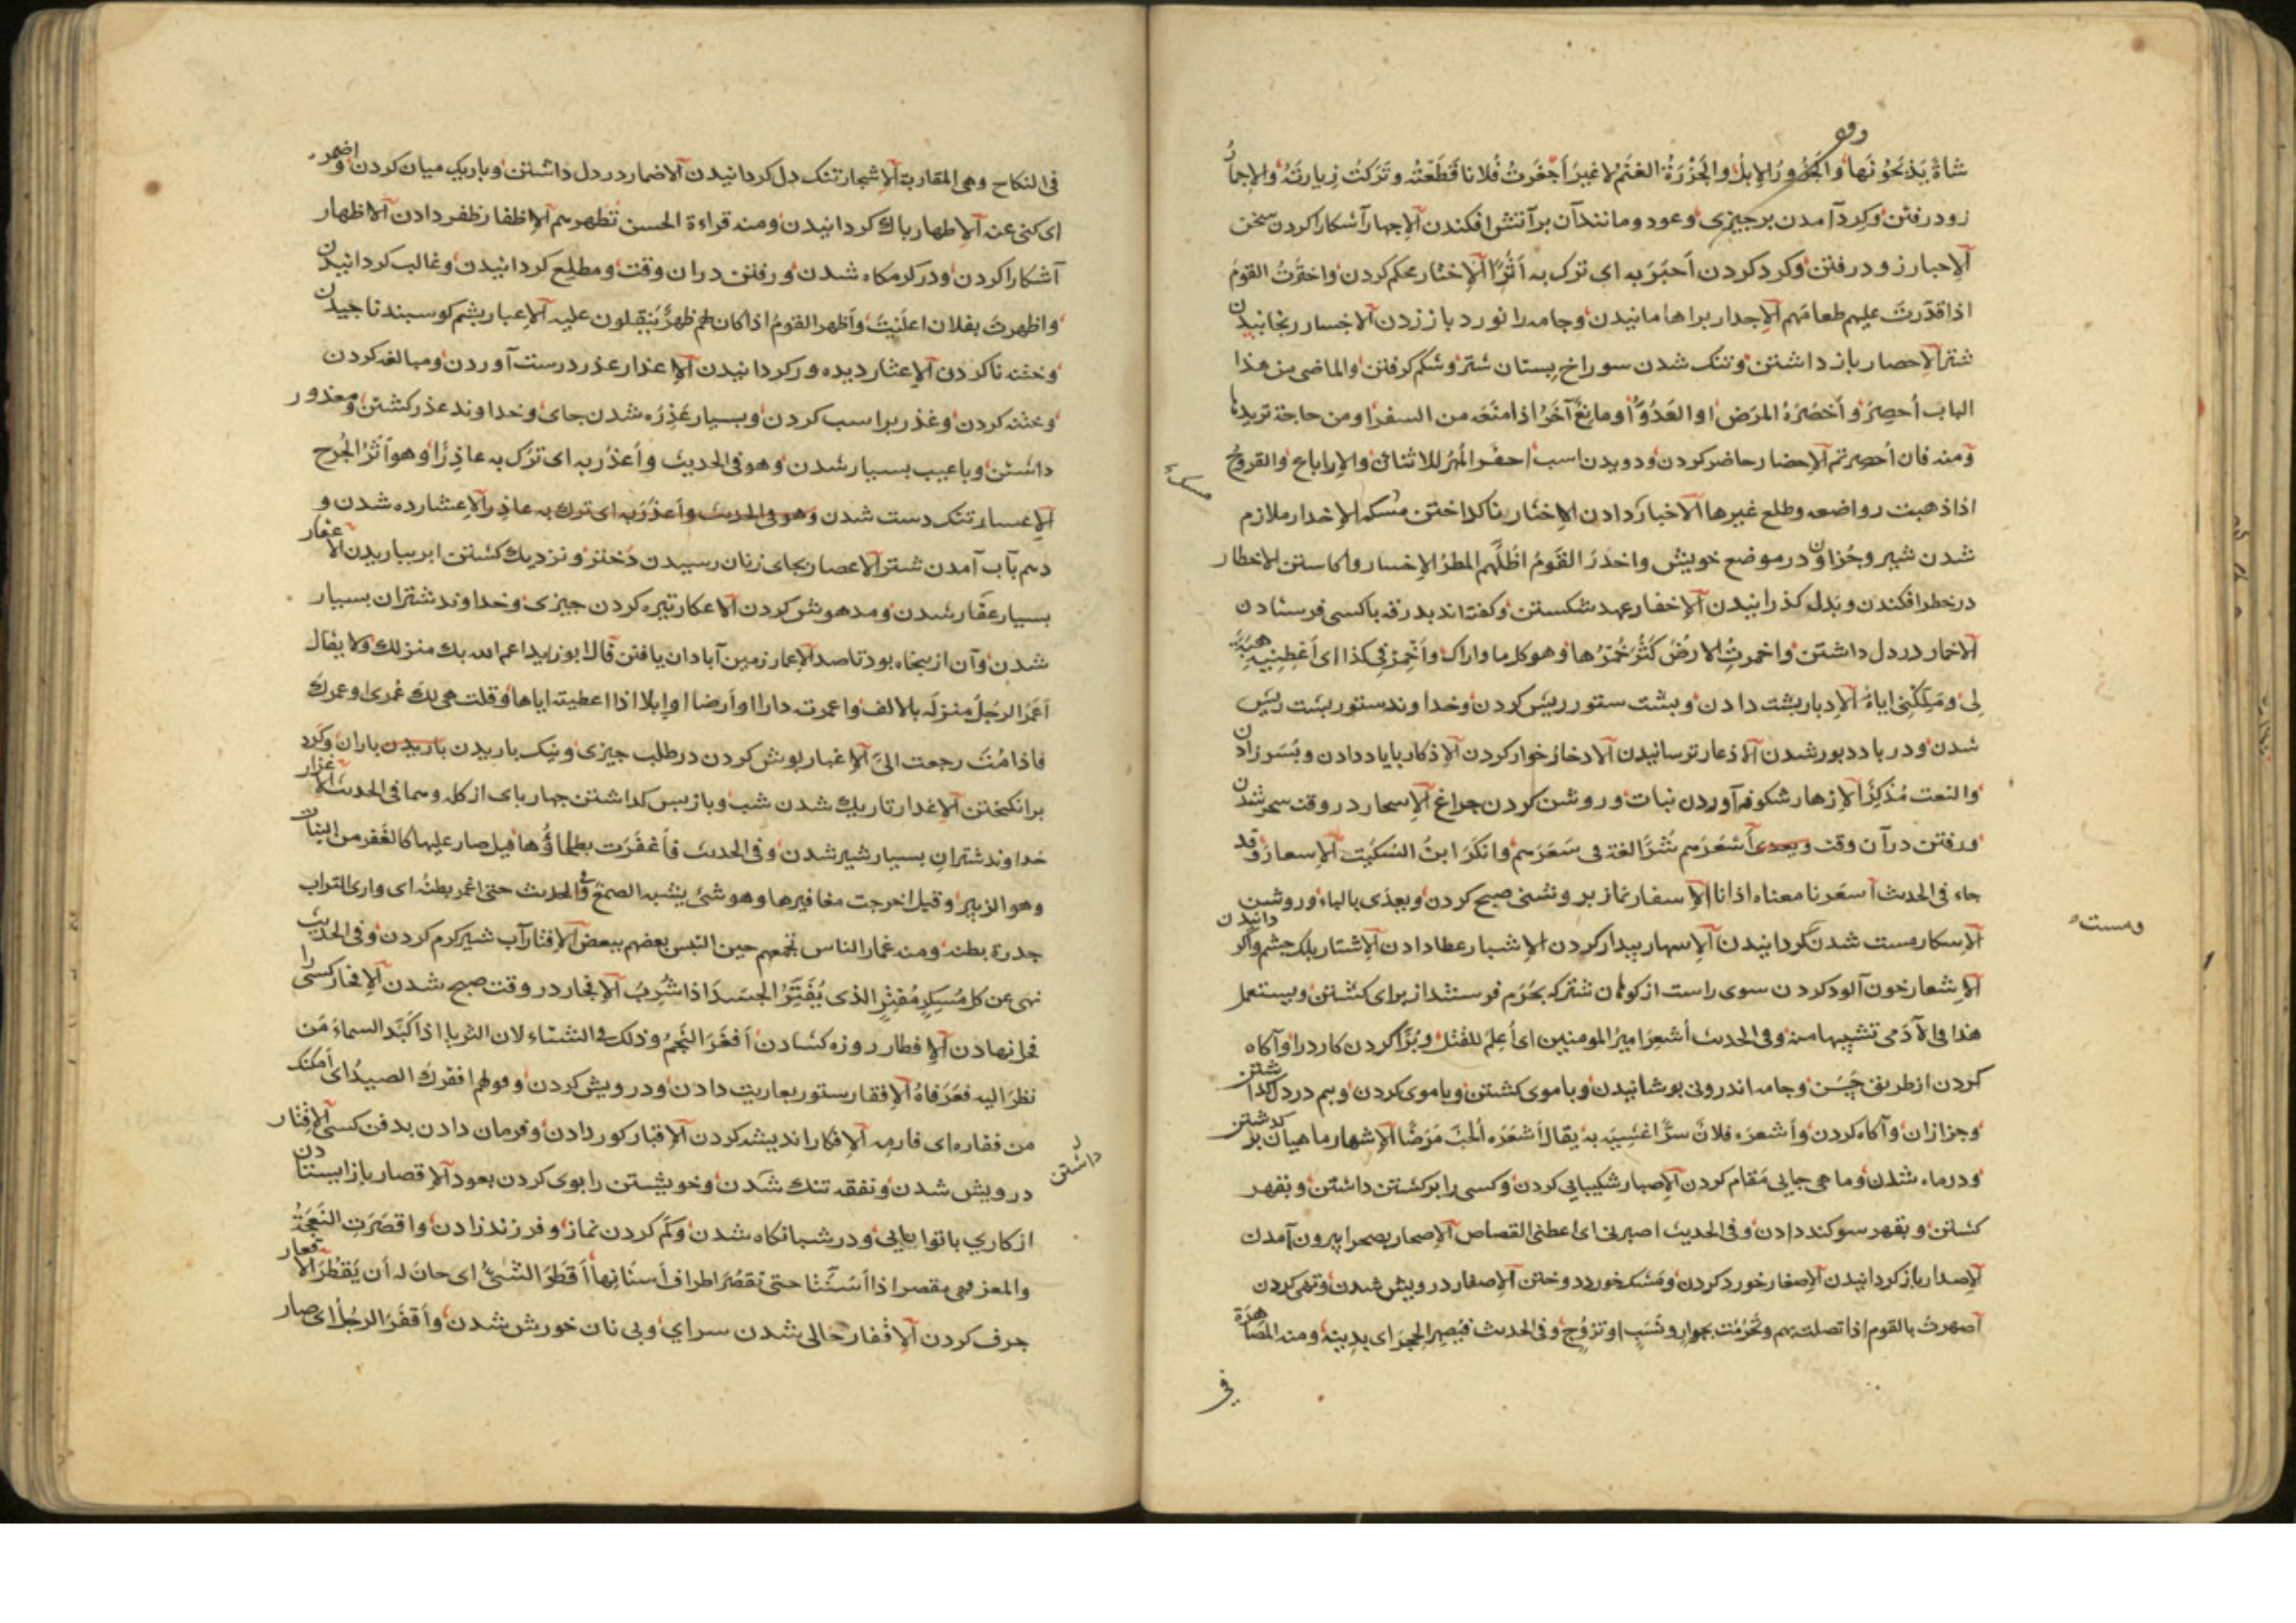 شاةً يَذبَحُونَها والجَزُورُ الإبلُ والجَزْرَةُ الغنَمُ لا غيرُ أَجْفَرتُ فُلانا قَطَعْتُه وتَرَكتُ زِيارتَهُ والاجمارُ
زود رفتن وكرد آمدن بر جيزى وعود ومانند آن بر آتش افكندن الاجهار آشكارا كردن سخن
الاحبار زود رفتن وكرد كردن أحبَرَ به اى ترك به أثرًا الاختار محكم كردن واحتَرتُ القومَ
اذا قدّرتَ عليهم طعامَهم الاجدار براها مانيدن وجامه را نورد باز زدن الاخسار رنجانيدن
شتر الاحصار باز داشتن وتنك شدن سوراخ بستان شتر وشكم كرفتن والماضى من هذا
الباب أُحصِرَ وأَحْصَرَهُ المرَض او العَدُوُّ أو مانِعٌ آخَرُ اذا منَعَه من السفر او من حاجة تريدها
ومنه فان أُحصِرتم الاحضار حاضر كردن ودويدن اسب احفَر المُهرُ للاثناء والارباع والقروح
اذا ذهبت رواضعه وطلع غيرها الاخبار خبر دادن الاخثار ناكداختن مسكه الاخدار ملازم
شدن شير وجزاون در موضع خويش واخدَرَ القَومُ اظَلَّهم المطرُ الاخسار واكاستن الاخطار
در خطر افكندن وبَدل كذرانيدن الاخفار عهد شكستن وكفته اند بدرقه باكسى فرستادن
الاخمار در دل داشتن واخمرتِ الارضُ كَثُرَ خَمَرُها وهو كل ما واراك وأَخْمِرْنِى كذا اى أَعْطِنِيهِ هِبَةً
لى ومَلِّكْنِى اياهُ الادبار پشت دادن وبشت ستور ريش كردن وخداوند ستور بشت ريش
شدن ودر باد دبور شدن الاذعار ترسانيدن الادخار خوار كردن الاذكار با ياد دادن وپسر زادن
والنعت مُذكِرٌ الازهار شكوفه آوردن نبات وروشن كردن چراغ الاسحار در وقت سحر شدن
ورفتن در آن وقت ويعدى أَسْعَرَهم شَرًّا لغة فى سَعَرَهم وانكَرَ ابنُ السّكيت الاسعار وقد
جاء فى الحديث أسعرنا معناه اذانا الاسفار نماز بروشنى صبح كردن ويعدّى بالباء وروشن
الاسكار مست شدن كردانيدن الاسهار بيدار كردن الاشبار عطا دادن الاشتار پلك چشم واكردانيدن
الاشعار خون آلود كردن سوى راست از كوهان شتر كه بحَرَم فرستند از براى كشتن ويستعمل
هذا فى الآدَمى تشبيها منه وفى الحديث أشعِرَ اميرُ المومنين اى أُعلِمَ للقتل وبُزّا كردن كارد را وآكاه
كردن از طريق حِسّ وجامه اندرونى بوشانيدن وباموى كشتن وباموى كردن وبيم در دل كذاشتن
وجزازان وآكاه كردن وأشعرَه فلانٌ شرًّا غَشِيَه به يقال أَشعَرَه الحُبّ مَرَضًا الاشهار ماهيان بر كذشتن
ودر ماه شدن وماهى جايى مقام كردن الاصبار شكيبايى كردن وكسى را بر كشتن داشتن وبقهر
كشتن وبقهر سوكند دادن وفى الحديث اصبرنى اى اعطنى القصاص الاصحار بصحرا بيرون آمدن
الاصدار باز كردانيدن الاصغار خورد كردن ومشك خورد دوختن الاصفار درويش شدن وتهى كردن
أصهرتُ بالقوم اذا اتصلت بهم وتَحَرَّمْتَ بجوارٍ ونَسَبٍ او تزوّج وفى الحديث فيُصهِرُ الحجَرَ اى يدنيه ومنه المصاهرة
ومست
فى
فى النكاح وهى المقاربة الاشجار تنك دل كردانيدن الاضمار در دل داشتن وباريك ميان كردن واضمر
اى كنى عنه الاطهار باك كردانيدن ومنه قراءة الحسن تُطهِرهم الاظفار ظفر دادن الاظهار
آشكارا كردن ودر كرمكاه شدن ورفتن در ان وقت ومطلع كردانيدن وغالب كردانيدن
واظهرتَ بفلان اعلَيتَ وأظهر القومُ اذا كان لهم ظهرٌ يَنتقِلون عليه الاعبار پشم كوسبند ناجيدن
وختنه ناكردن الاعثار ديده ور كردانيدن الاعذار عذر درست آوردن ومبالغه كردن
وختنه كردن وعذر بر اسب كردن وبسيار عَذِرَه شدن جاى وخداوند عذر كشتن ومعذور
داشتن وباعيب بسيار شدن وهو فى الحديث وأعذَرَ به اى ترك به عاذِرًا وهو أثَرُ الجُرح
الاعسار تنك دست شدن وهو فى الحديث وأعذَرَ به اى ترك به عاذر الاعشار ده شدن و
دهم بآب آمدن شتر الاعصار بجاى زنان رسيدن دختر ونزديك كشتن ابر بباريدن الاعقار
بسيار عقار شدن ومدهوش كردن الاعكار تيره كردن جيزى وخداوند شتران بسيار
شدن وآن از پنجاه بود تا صد الاعمار زمين آبادان يافتن قال ابو زيد اعمر الله بك منزلك ولا يقال
أعمَرَ الرجلُ منزلَه بالالف واعمرته دارا او أرضا او ابلا اذا اعطيته اياها وقلت هى لك عُمرى او عمرك
فاذا مُتَّ رجعت الىّ الاغبار بوش كردن در طلب جيزى ونيك باريدن باريدن باران وكرد
بر انكيختن الاغدار تاريك شدن شب وباز بس كذاشتن چهار باى از كله وهما فى الحديث الاغزار
خداوند شتران بسيار شير شدن وفى الحديث فأغفَرَت بطحاؤُها قيل صار عليها كالغَفر من النبات
وهو الزبير وقيل اخرجت مغافيرها وهو شئ يشبه الصمغ وفى الحديث حتى اغمر بطنَه اى وارى التراب
جدرة بطنه ومنه غمار الناس تجمعهم حين التبس بعضهم ببعض الافتار آب شير كرم كردن وفى الحديث
نهى عن كل مُسكِرٍ مُفتِرٍ الذى يُفَتِّرُ الجسَدَ اذا شُرِبَ الافجار در وقت صبح شدن الافخار كسى را
فخر نهادن الافطار روزه كشادن أفغَرَ النَّجمُ وذلك فى الشتاء لان الثريا اذا كَبَّد السماءَ مَن
نظرَ اليه فغَرَ فاهُ الافقار ستور بعاريت دادن ودرويش كردن وقولهم افقرك الصيدُ اى أمكنك
من فقاره اى فارمه الافكار انديشه كردن الاقبار كور دادن وفرمان دادن بدفن كسى الاقتار
درويش شدن ونفقه تنك شدن وخويشتن را بوى كردن بعود الاقصار باز ايستادن
از كارى با توانايى ودر شبانكاه شدن وكم كردن نماز وفرزند زادن واقصَرَتِ النَّعجةُ
والمعز فهى مقصر اذا أسَنَّتا حتى تقصُرَ اطراف أسنانها أقطَرَ الشَّئُ اى حانَ له أن يَقطُرَ الاقعار
جرف كردن الاقفار خالى شدن سراي وبى نان خورش شدن وأقفَرَ الرجُلُ اى صار
داشتن